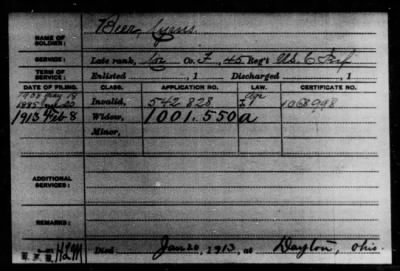 NAME OF SOLDIER: Beer,
SERVICE: Late rank, Co. F, 45 Reg't U.S.C. Inf
TERM OF SERVICE: Enlisted , 1 Discharged , 1
DATE OF FILING. CLASS. APPLICATION NO. LAW. CERTIFICATE NO.
1885 20 Invalid, 542 828 1068998
1913 Feb 8 Widow, 1001.550 a
Minor,
ADDITIONAL SERVICES:
REMARKS:
Died Jan 20, 1913, at Dayton, Ohio.